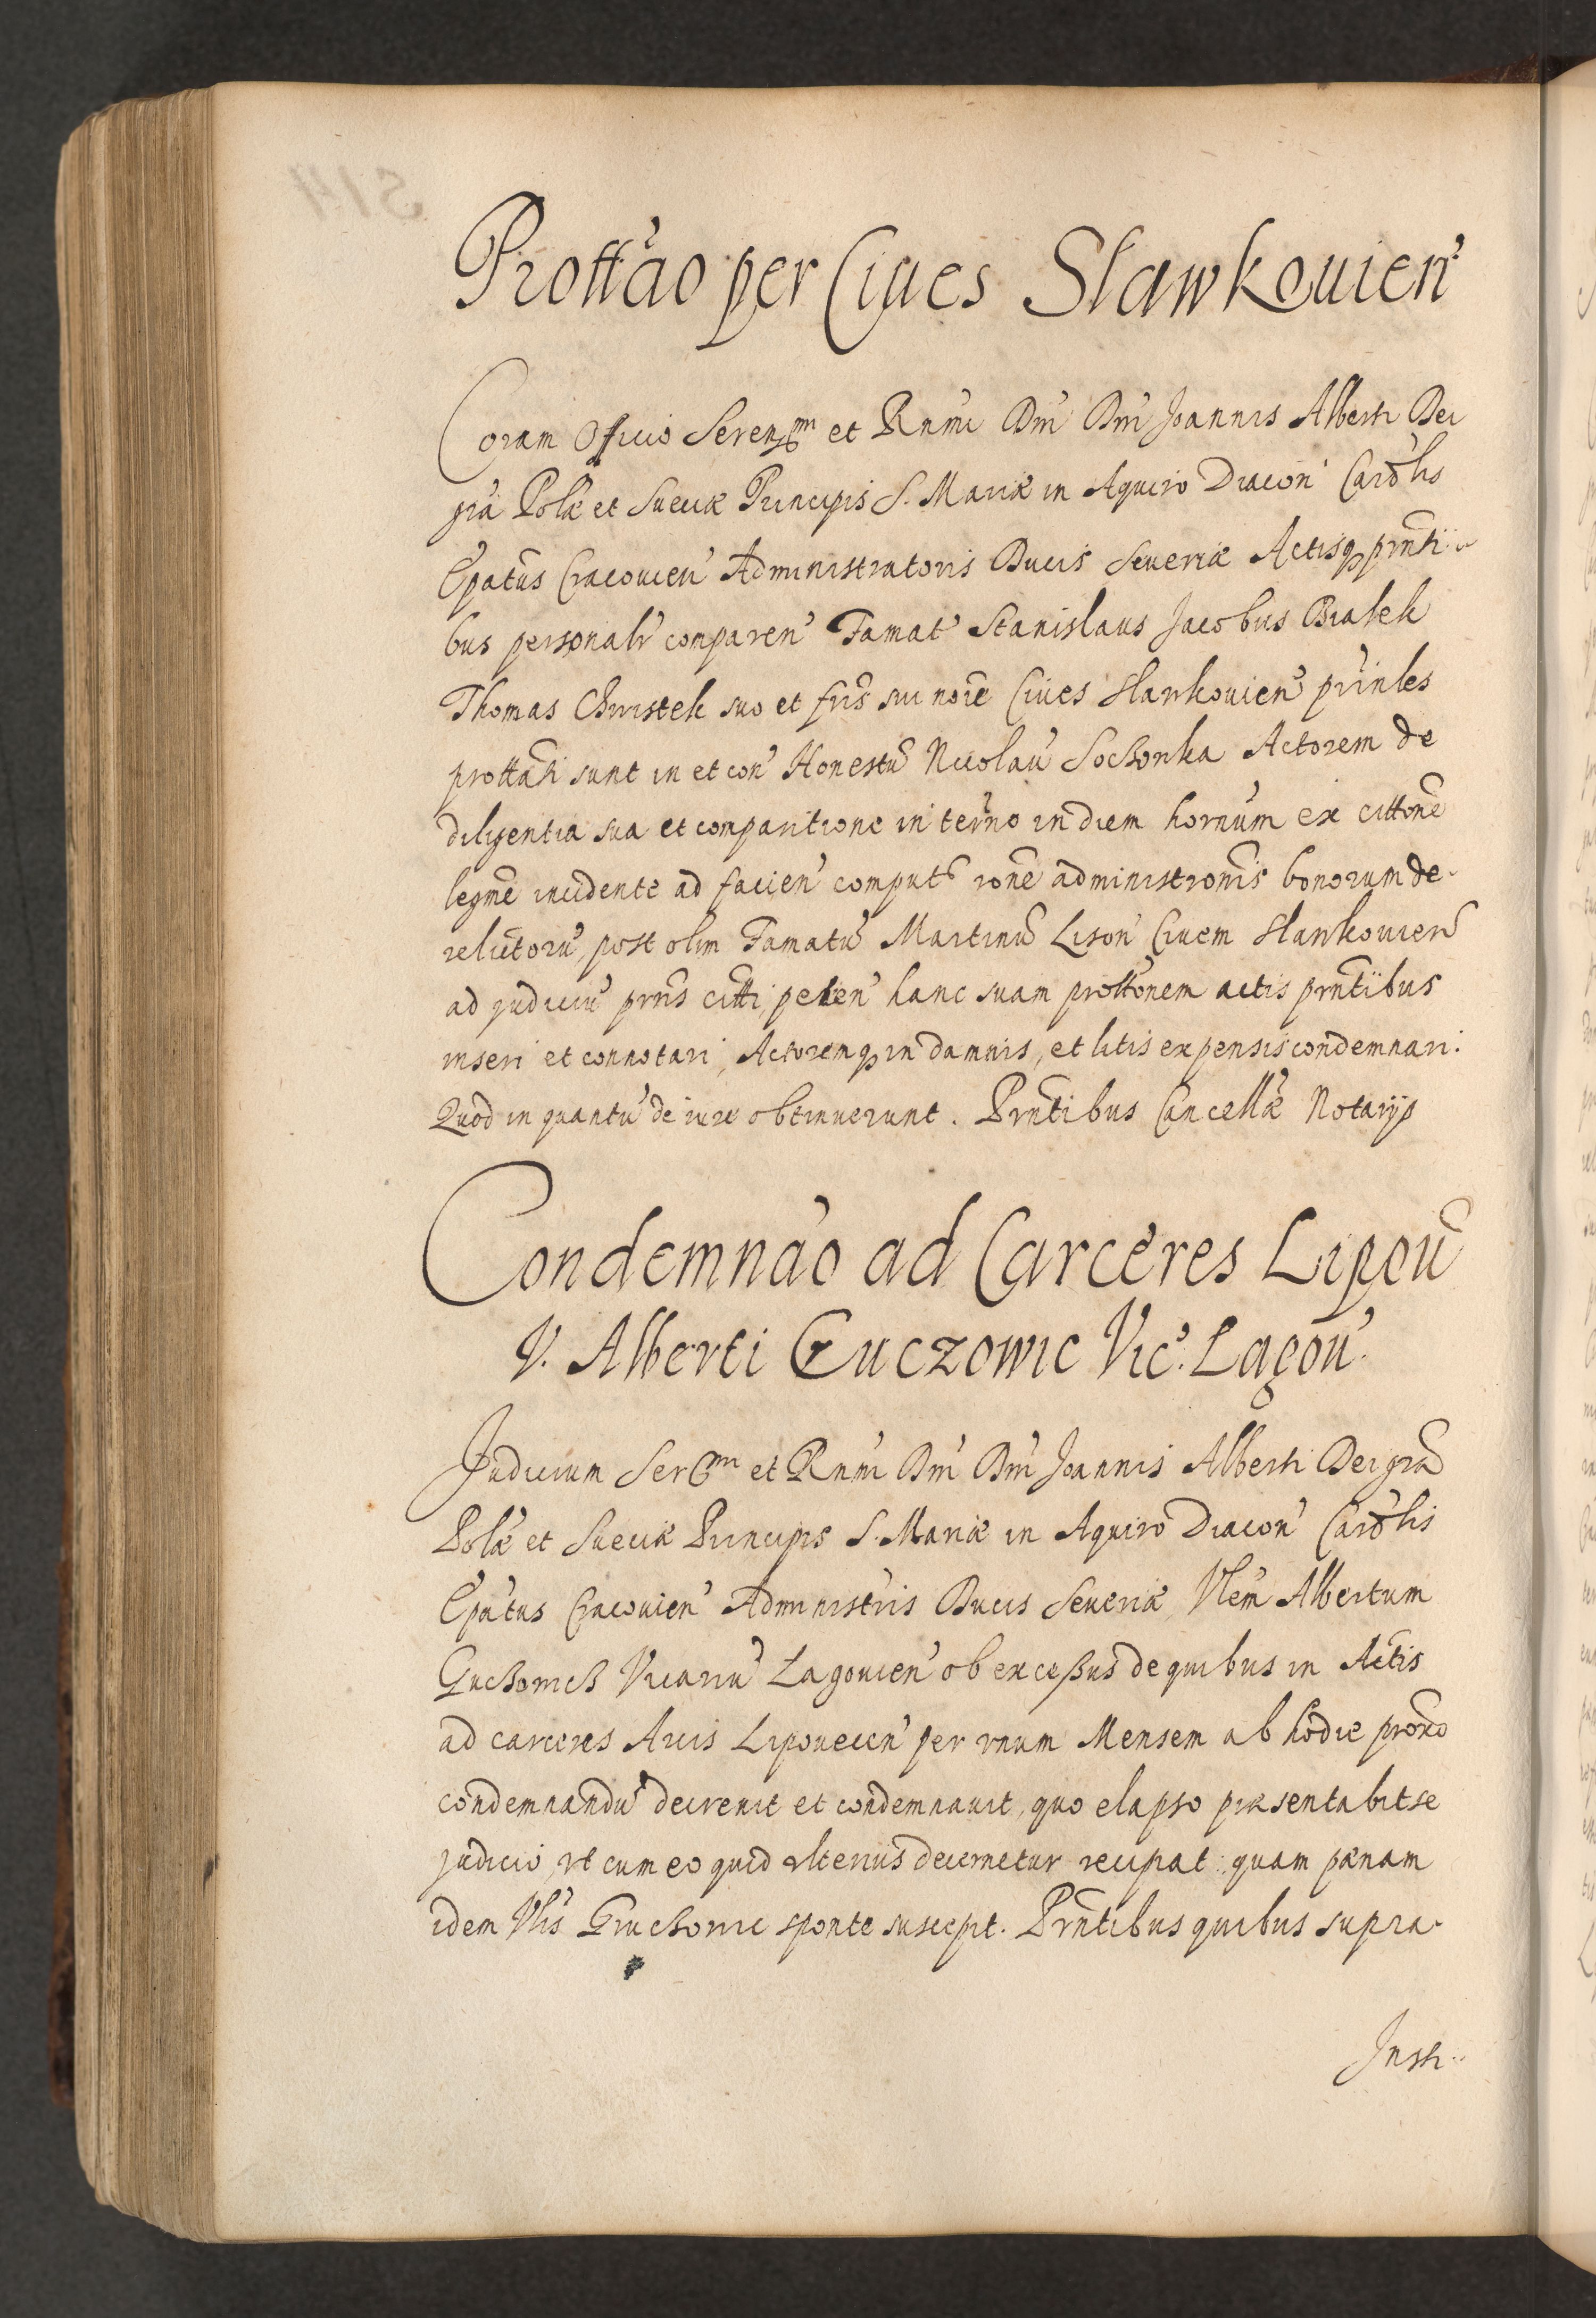 Prottao per Ciues Slawkouien
Coram Officio Sereniss^mi et Rnmi Dni Dni Joannis Alberti Dei
gra Polae et Sueciae Principis S. Mariae in Aquiro Diacon Cardlis
Epatus Cracouien Administratoris Ducis Seueriae Actisq prnti
bus personalr comparen Famat Stanislaus Jacobus Bialek
Thomas Christek suo et fris sui noie Ciues Slawkouien prinles
prottati sunt in et con Honestu Nicolau Sochonka Actorem de
diligentia sua et comparitione in termo in diem hornum ex cittone
legme incidente ad facien comput rone administronis bonorum de
relictoru post olim Famatu Martinu Lison Ciuem Slawkouien
ad judiciu prns citti, peten hanc suam prottonem actis prntibus
inseri et connotari, Actoremq in damnis, et litis expensis condemnari.
Quod in quantu de iure obtinuerunt. Prntibus Cancellae Notarijs
Condemnao ad Carceres Lipou
V. Alberti Guczowic Vic. Lagou.
Judicium Ser^mi et Rnmi Dni Dni Joannis Alberti Dei gra
Polae et Sueciae Principis S. Mariae in Aquiro Diacon Cardlis
Epatus Cracouien Administris Ducis Seueriae Vlem Albertum
Guchowich Vicariu Lagouien ob excessus de quibus in Actis
ad carceres Arcis Lipouecen per vnum Mensem ab hodie proxo
condemnandu decreuit et condemnauit, quo elapso praesentabit se
judicio, vt cum eo quid vlterius decernetur recipat: quam paenam
idem Vlis Gruchowic sponte suscepit. Prntibus quibus supra.
Insti